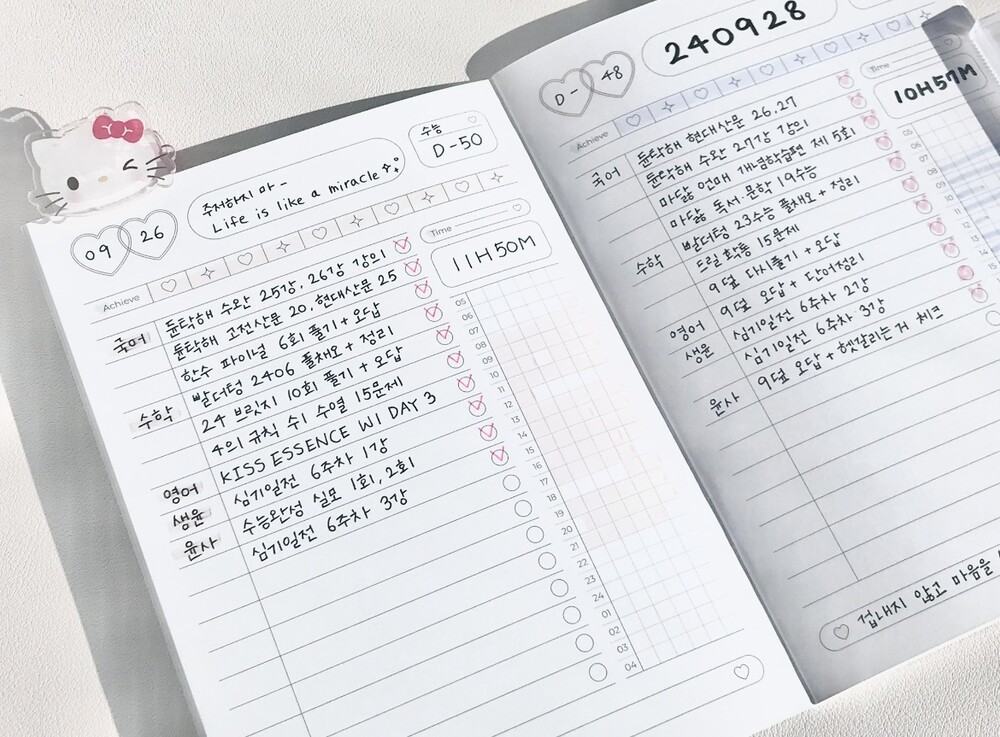 수능
D-50
주저하지 마-
Life is like a miracle
09 26
Achieve
Time
11H 50M
국어 듄탁해 수완 25강, 26강 강의
듄탁해 고전산문 20, 현대산문 25
한수 파이널 6회 풀기 + 오답
수학 발더텅 2406 풀채오 + 정리
24 브릿지 10회 풀기 + 오답
4의 규칙 수1 수열 15문제
영어 KISS ESSENCE W1 DAY 3
생윤 심기일전 6주차 1강
수능완성 실모 1회, 2회
윤사 심기일전 6주차 3강
05
06
07
08
09
10
11
12
13
14
15
16
17
18
19
20
21
22
23
24
01
02
03
04
240928
D- 48
Achieve
Time
10H 57M
국어 듄탁해 현대산문 26, 27
듄탁해 수완 27강 강의
마닳 언매 개념학습편 제 5회
마닳 독서·문학 19수능
수학 발더텅 23수능 풀채오 + 정리
드릴 확통 15문제
9덮 다시풀기 + 오답
영어 9덮 오답 + 단어정리
생윤 심기일전 6주차 2강
심기일전 6주차 3강
윤사 9덮 오답 + 헷갈리는거 체크
05
06
07
08
09
10
11
12
13
14
15
겁내지 않고 마음을